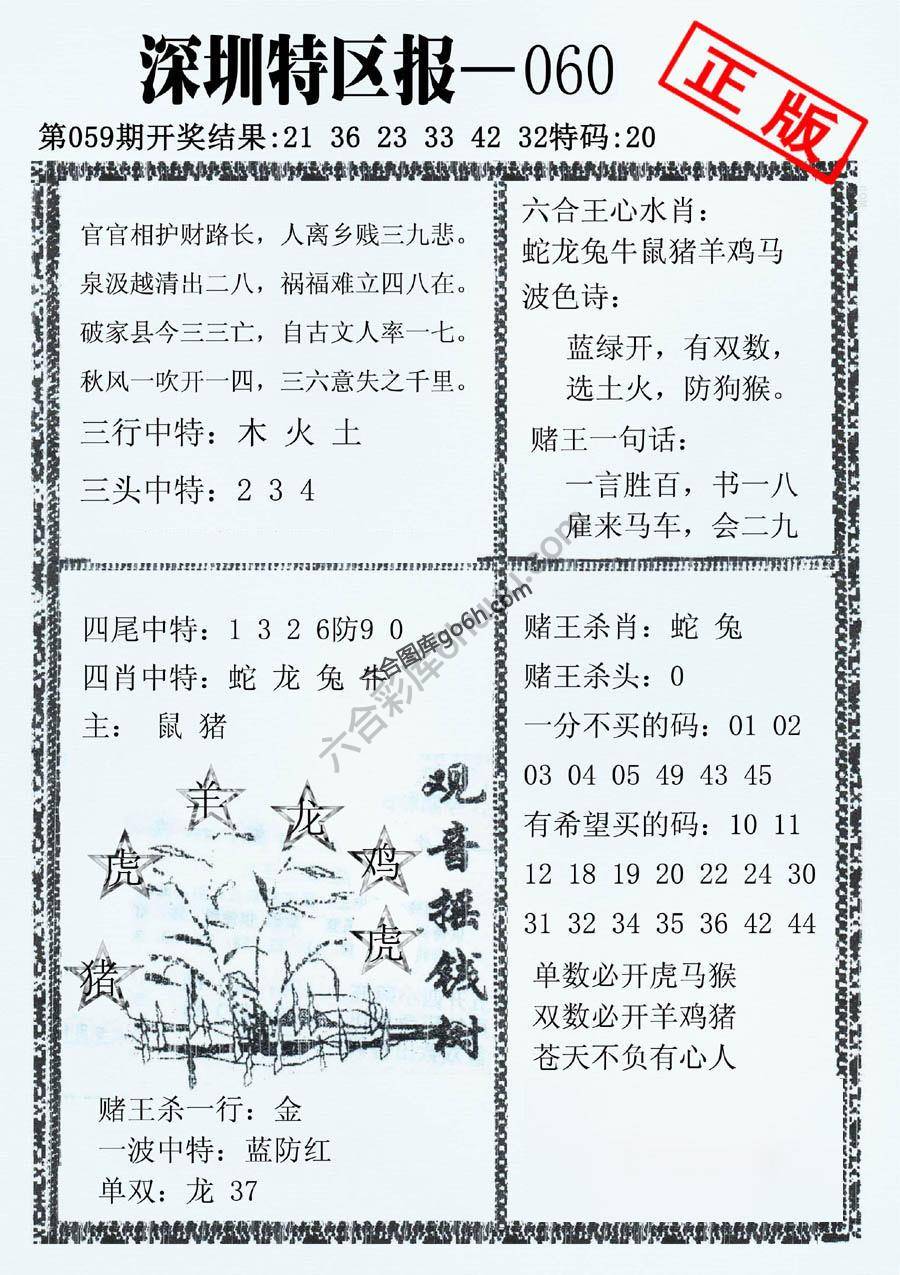 深圳特区报—060
正版
第059期开奖结果:21 36 23 33 42 32特码:20
官官相护财路长，人离乡贱三九悲。
泉汲越清出二八，祸福难立四八在。
破家县今三三亡，自古文人率一七。
秋风一吹开一四，三六意失之千里。
三行中特：木 火 土
三头中特：2 3 4
六合王心水肖：
蛇龙兔牛鼠猪羊鸡马
波色诗：
蓝绿开，有双数，
选土火，防狗猴。
赌王一句话：
一言胜百，书一八
雇来马车，会二九
四尾中特：1 3 2 6防9 0
四肖中特：蛇 龙 兔 牛
主： 鼠 猪
羊
龙
虎
鸡
虎
猪
观音摇钱树
赌王杀一行：金
一波中特：蓝防红
单双：龙 37
赌王杀肖：蛇 兔
赌王杀头：0
一分不买的码：01 02
03 04 05 49 43 45
有希望买的码：10 11
12 18 19 20 22 24 30
31 32 34 35 36 42 44
单数必开虎马猴
双数必开羊鸡猪
苍天不负有心人
六合图库go6h.com